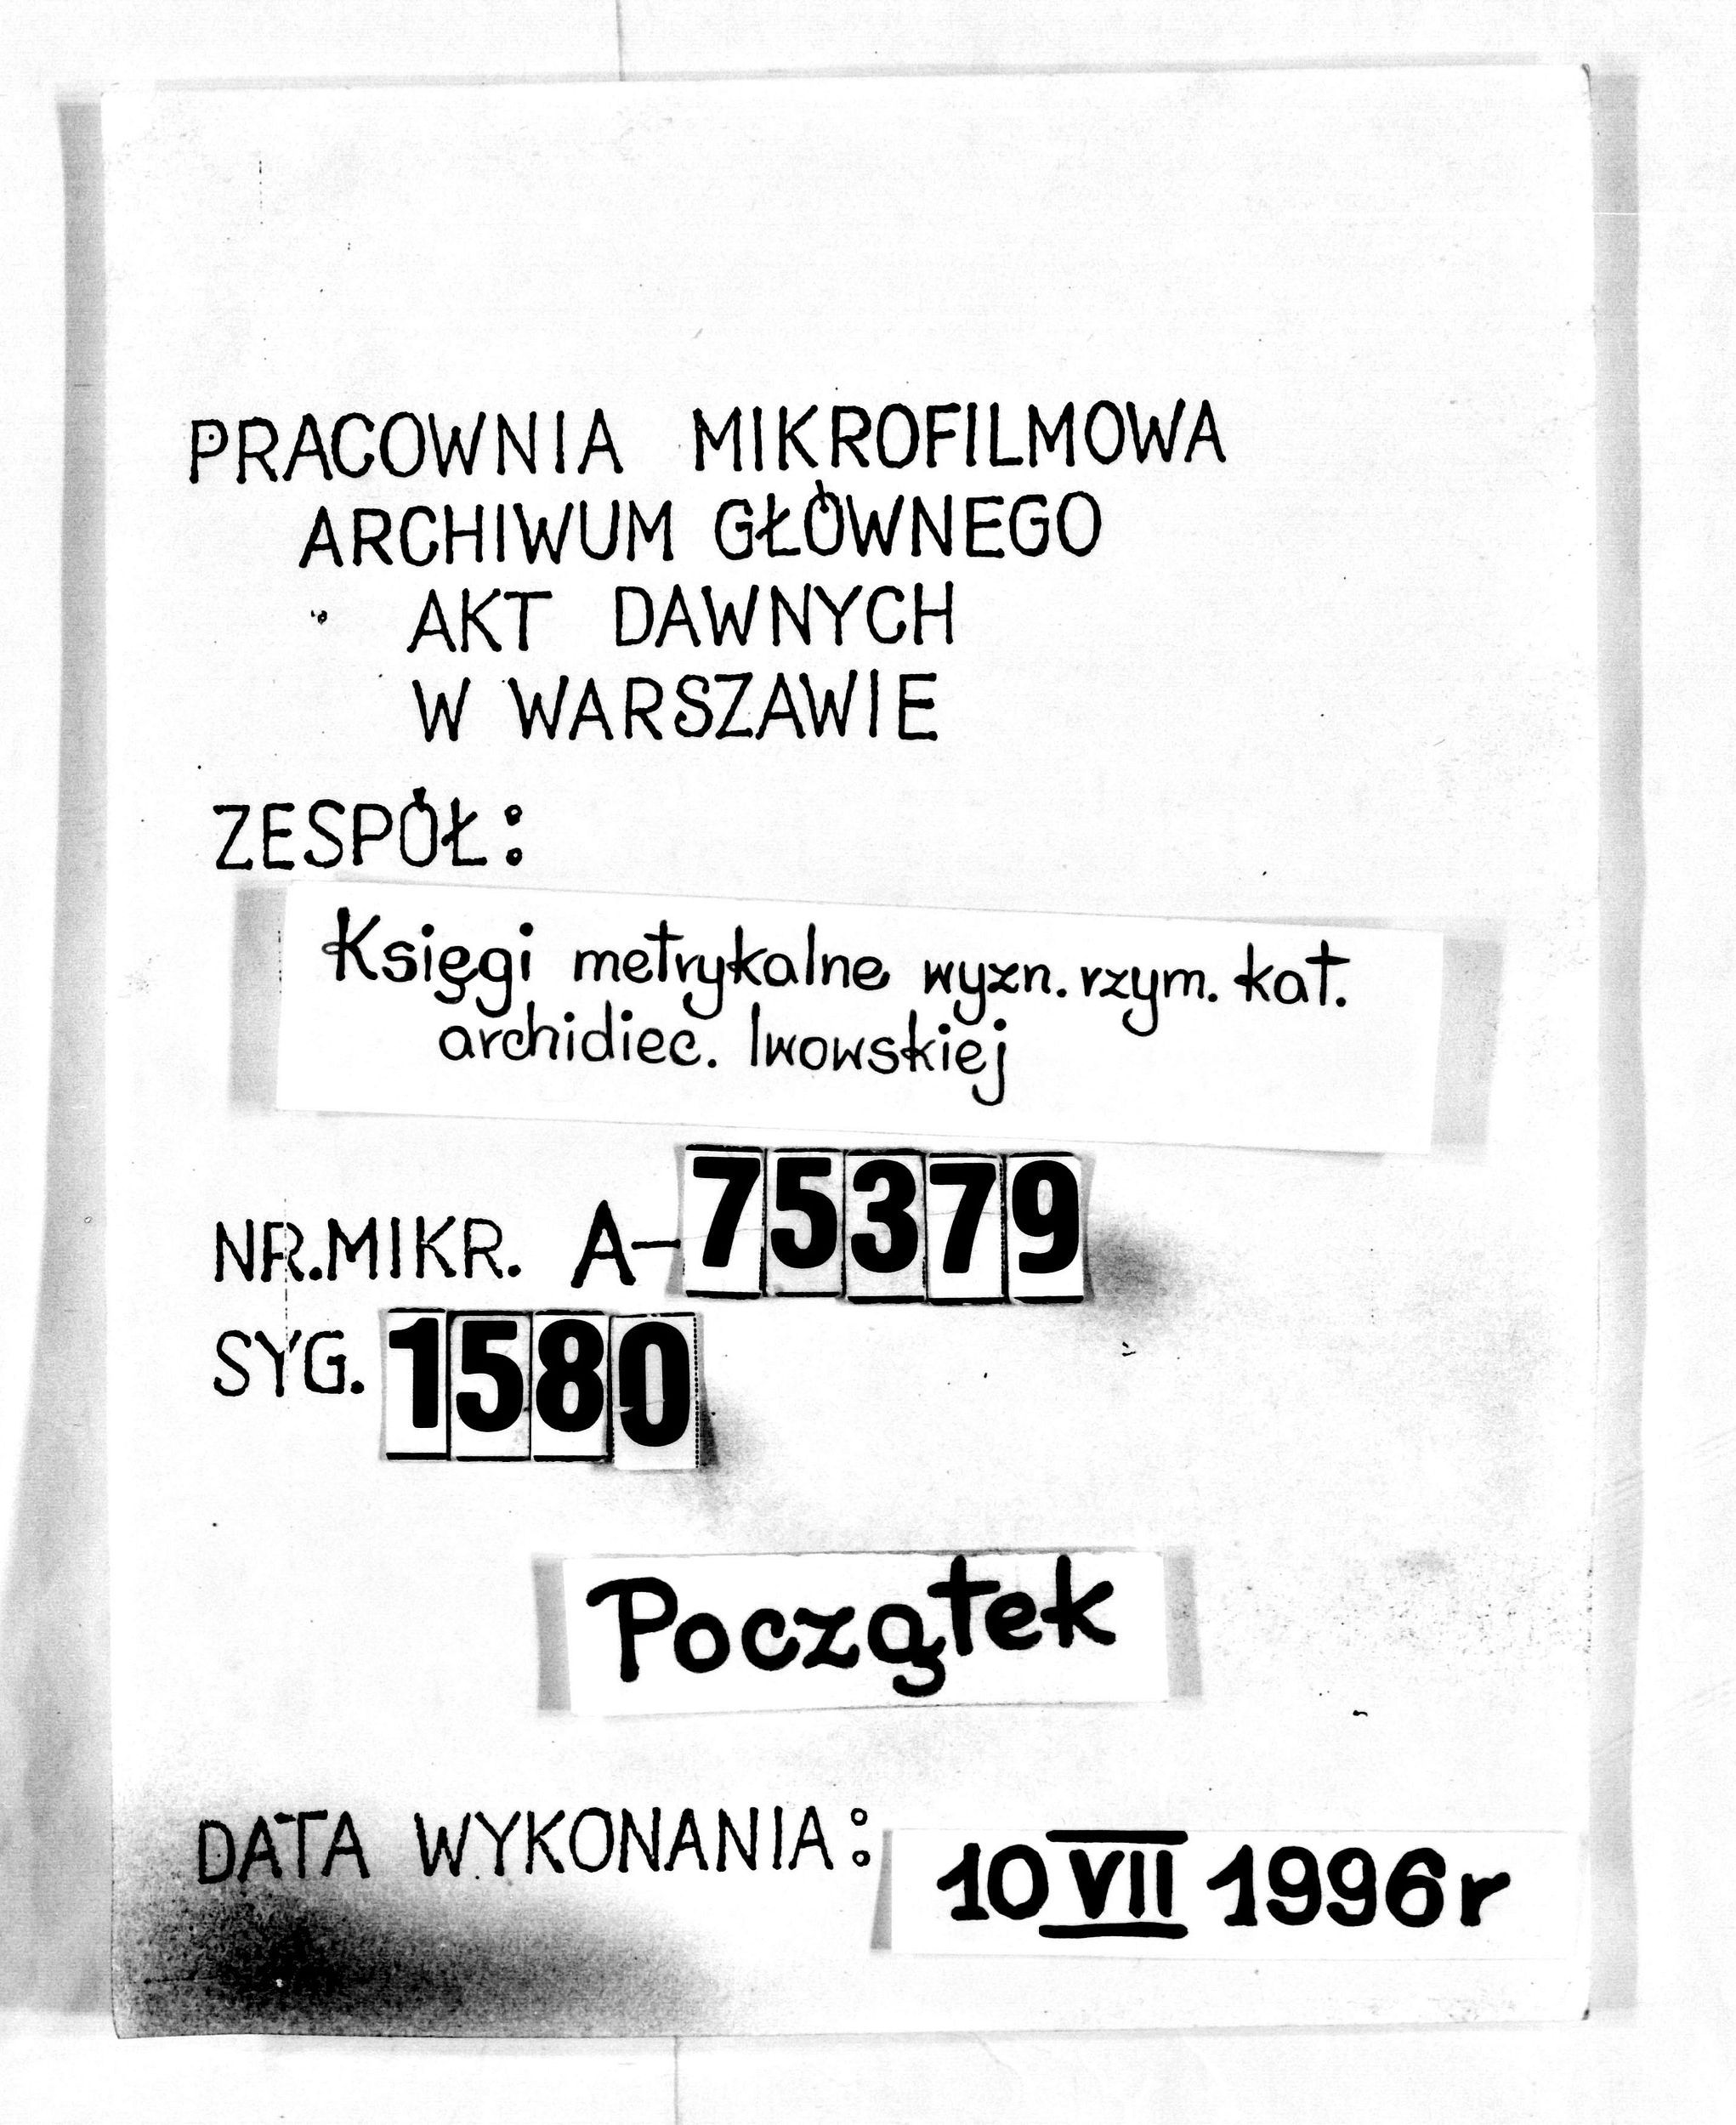 PRACOWNIA MIKROFILMOWA
ARCHIWUM GŁÓWNEGO
AKT DAWNYCH
W WARSZAWIE
ZESPÓŁ:
Księgi metrykalne wyzn. rzym. kat.
archidiec. lwowskiej
NR.MIKR. A-75379
SYG. 1580
Początek
DATA WYKONANIA: 10 VII 1996 r